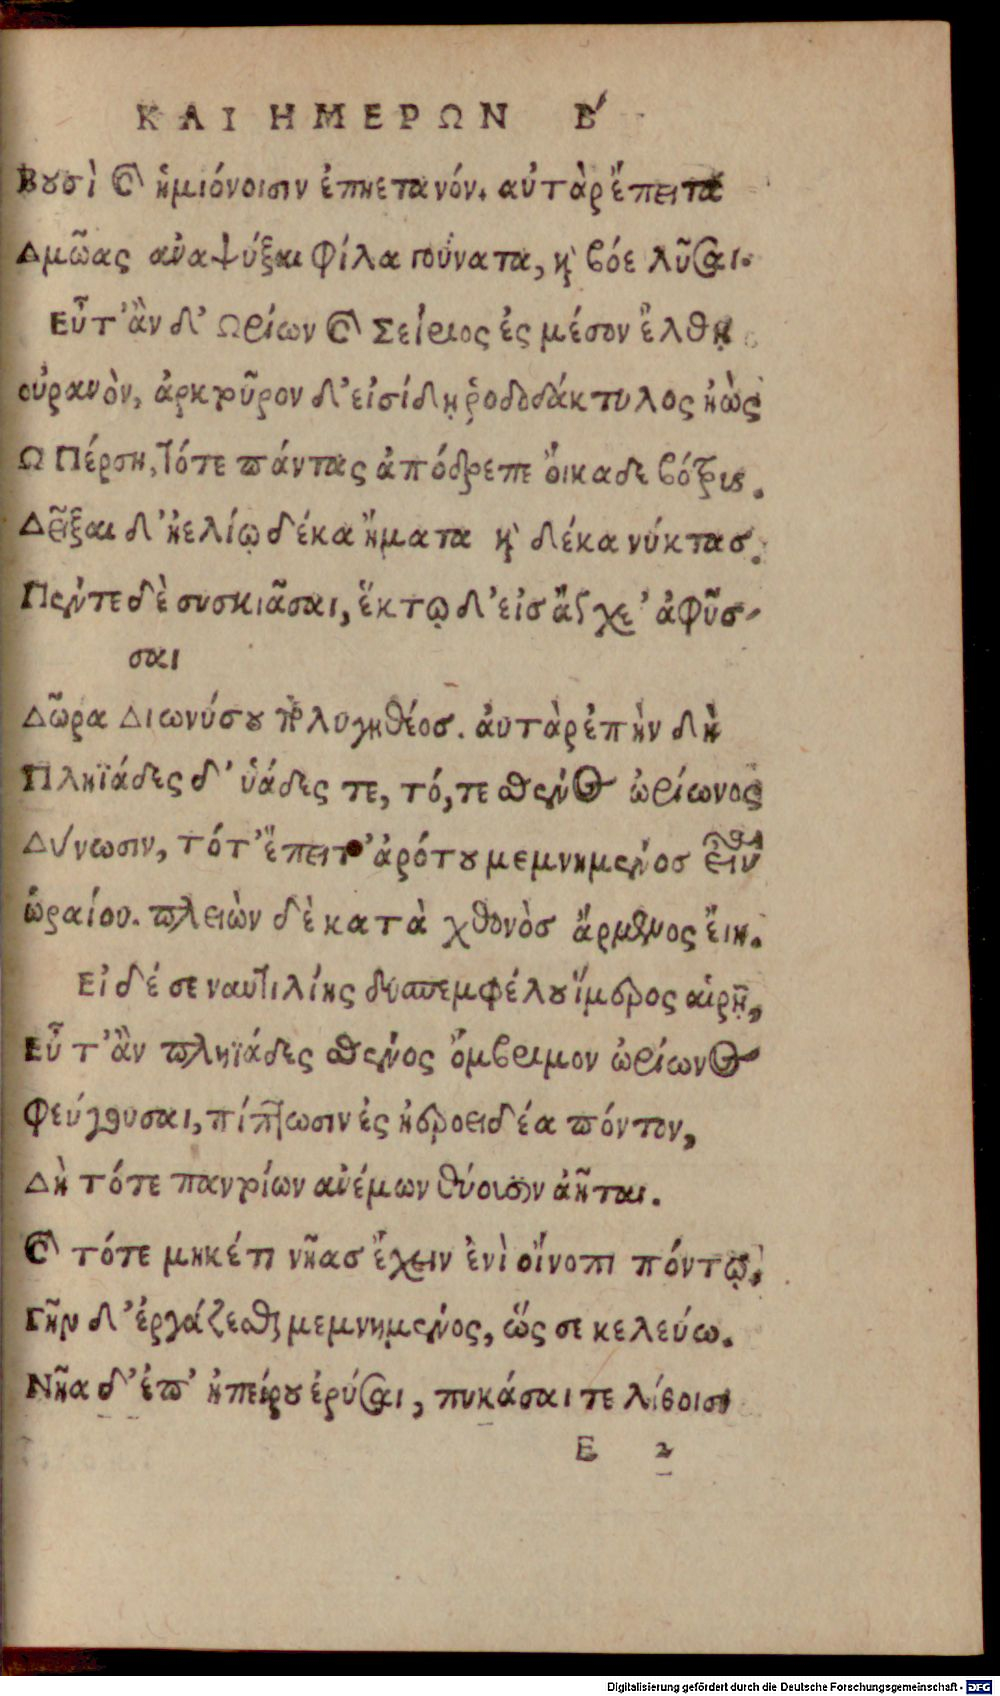 ΚΑΙ ΗΜΕΡΩΝ Β'
Βουσὶ καὶ ἡμιόνοισιν ἐπηετανόν. αὐτὰρ ἔπειτα
Δμῶας ἀναψύξαι φίλα γούνατα, καὶ βόε λῦσαι.
Εὖτ' ἂν δ' Ωρίων καὶ Σείριος ἐς μέσον ἔλθῃ
οὐρανὸν, ἀρκτοῦρον δ' εἰσίδῃ ῥοδοδάκτυλος ἠὼς
Ω Πέρση, τότε πάντας ἀπόδρεπε οἴκαδε βότρυς.
Δεῖξαι δ' ἠελίῳ δέκα ἤματα καὶ δέκα νύκτασ.
Πέντε δὲ συσκιᾶσαι, ἕκτῳ δ' εἰσ ἄγγε' ἀφῦσ-
σαι
Δῶρα Διωνύσου πολυγηθέοσ. ἀυτὰρ ἐπὴν δὴ
Πληϊάδες θ' ὑάδες τε, τό, τε σθένος ὠρίωνος
Δύνωσιν, τότ' ἔπειτ' ἀρότου μεμνημένοσ εἶναι
ὡραίου. πλειὼν δὲ κατὰ χθονὸσ ἄρμενος εἴη.
Εἰ δέ σε ναυτιλίης δυσπεμφέλου ἵμερος αἱρῇ,
Εὖτ' ἂν πληϊάδες σθένος ὄμβριμον ὠρίωνος
Φεύγουσαι, πίπτωσιν ἐς ἠεροειδέα πόντον,
Δὴ τότε παντοίων ἀνέμων θύουσιν ἀῆται.
καὶ τότε μηκέτι νῆασ ἔχειν ἐνὶ οἴνοπι πόντῳ,
Γῆν δ' ἐργάζεσθαι μεμνημένος, ὥς σε κελεύω.
Νῆα δ' ἐπ' ἠπείρου ἐρύσαι, πυκάσαι τε λίθοισι
Ε 2
Digitalisierung gefördert durch die Deutsche Forschungsgemeinschaft - DFG